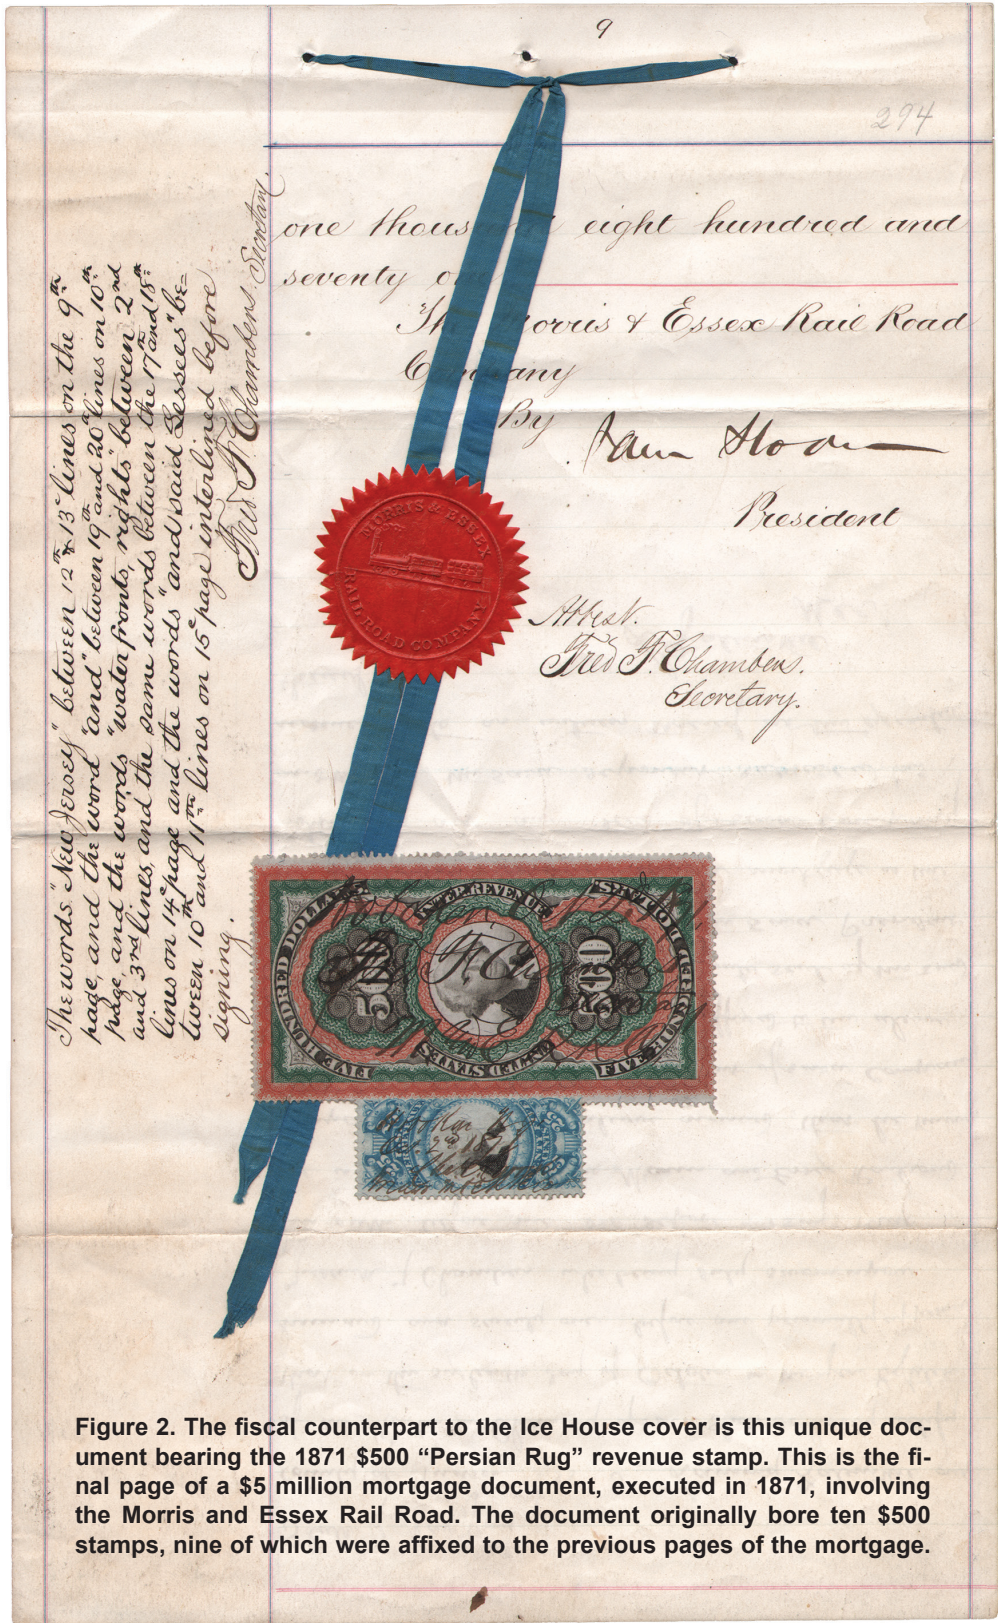 9
294
one thous eight hundred and
seventy o
Th orris & Essex Rail Road
C any
By
President
Attest.
Fred F. Chambers.
Secretary.
MORRIS & ESSEX
RAIL ROAD COMPANY
The words "New Jersey" between 12th & 13th lines on the 9th
page, and the word "and" between 19th and 20th lines on 10th
page, and the words "water fronts, rights" between 2nd
and 3rd lines, and the same words between the 17th and 18th
lines on 14th page and the words "and said Lessees" be=
tween 10th and 11th lines on 15th page interlined before
signing.
Fred F. Chambers Secretary.
FIVE HUNDRED DOLLARS
INTER. REVENUE
FIVE HUNDRED DOLLARS
500
500
UNITED STATES
Fred F. Chambers
25
25
Figure 2. The fiscal counterpart to the Ice House cover is this unique doc-
ument bearing the 1871 $500 “Persian Rug” revenue stamp. This is the fi-
nal page of a $5 million mortgage document, executed in 1871, involving
the Morris and Essex Rail Road. The document originally bore ten $500
stamps, nine of which were affixed to the previous pages of the mortgage.